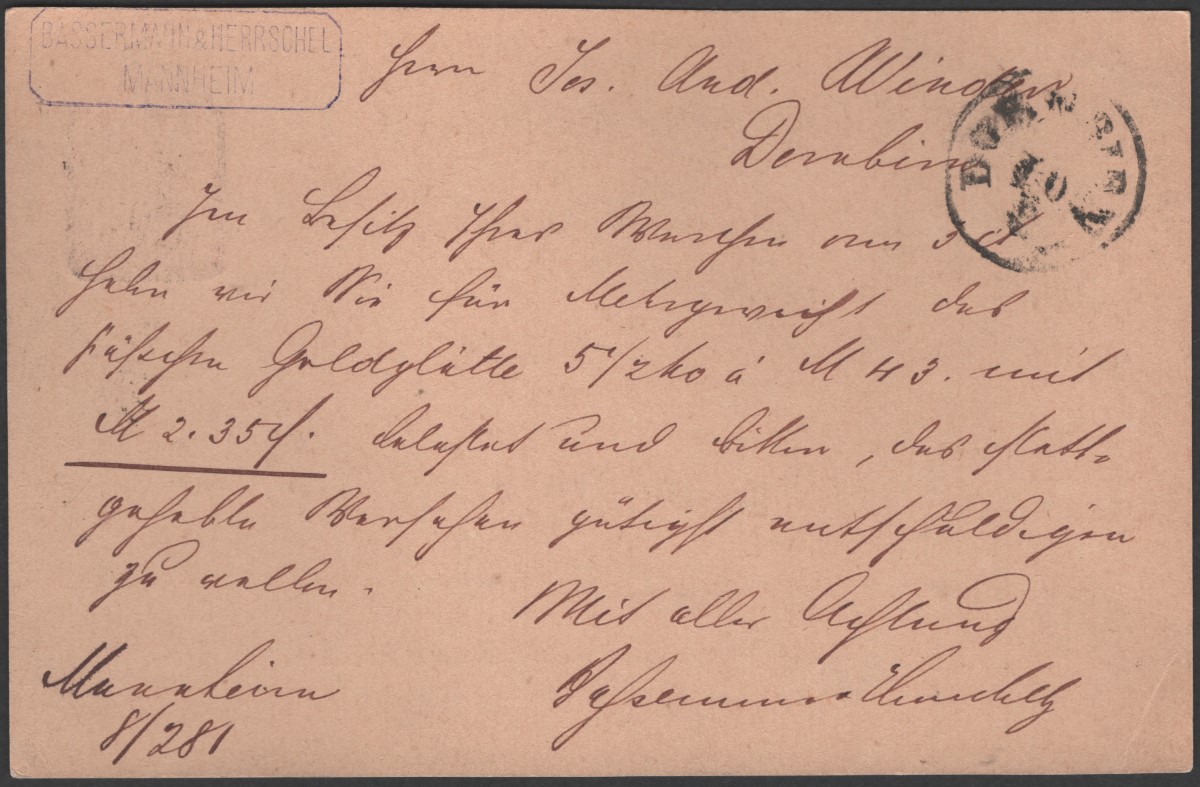 BASSERMANN & HERRSCHEL
MANNHEIM
Herrn Jos. And. Winder
Dornbirn
Im Besitz Ihres Werthen vom 3 ct
haben wir Sie für Mehrgewicht des
Fäßchen Goldglätte 5 1/2 ko á M 43. mit
M 2.35 ₰. belastet und bitten, das statt-
gehabte Versehen gütigst entschuldigen
zu wollen.
Mit aller Achtung
Bassermann & Herrschel
Mannheim
8/2 81
DORNBIRN
10